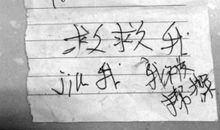 救救我
jiu 我 我被
绑架